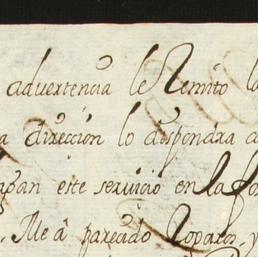 advertencia le Remito la
a direccion lo dispondra a
agan este servicio en la fo
. Me à parecido